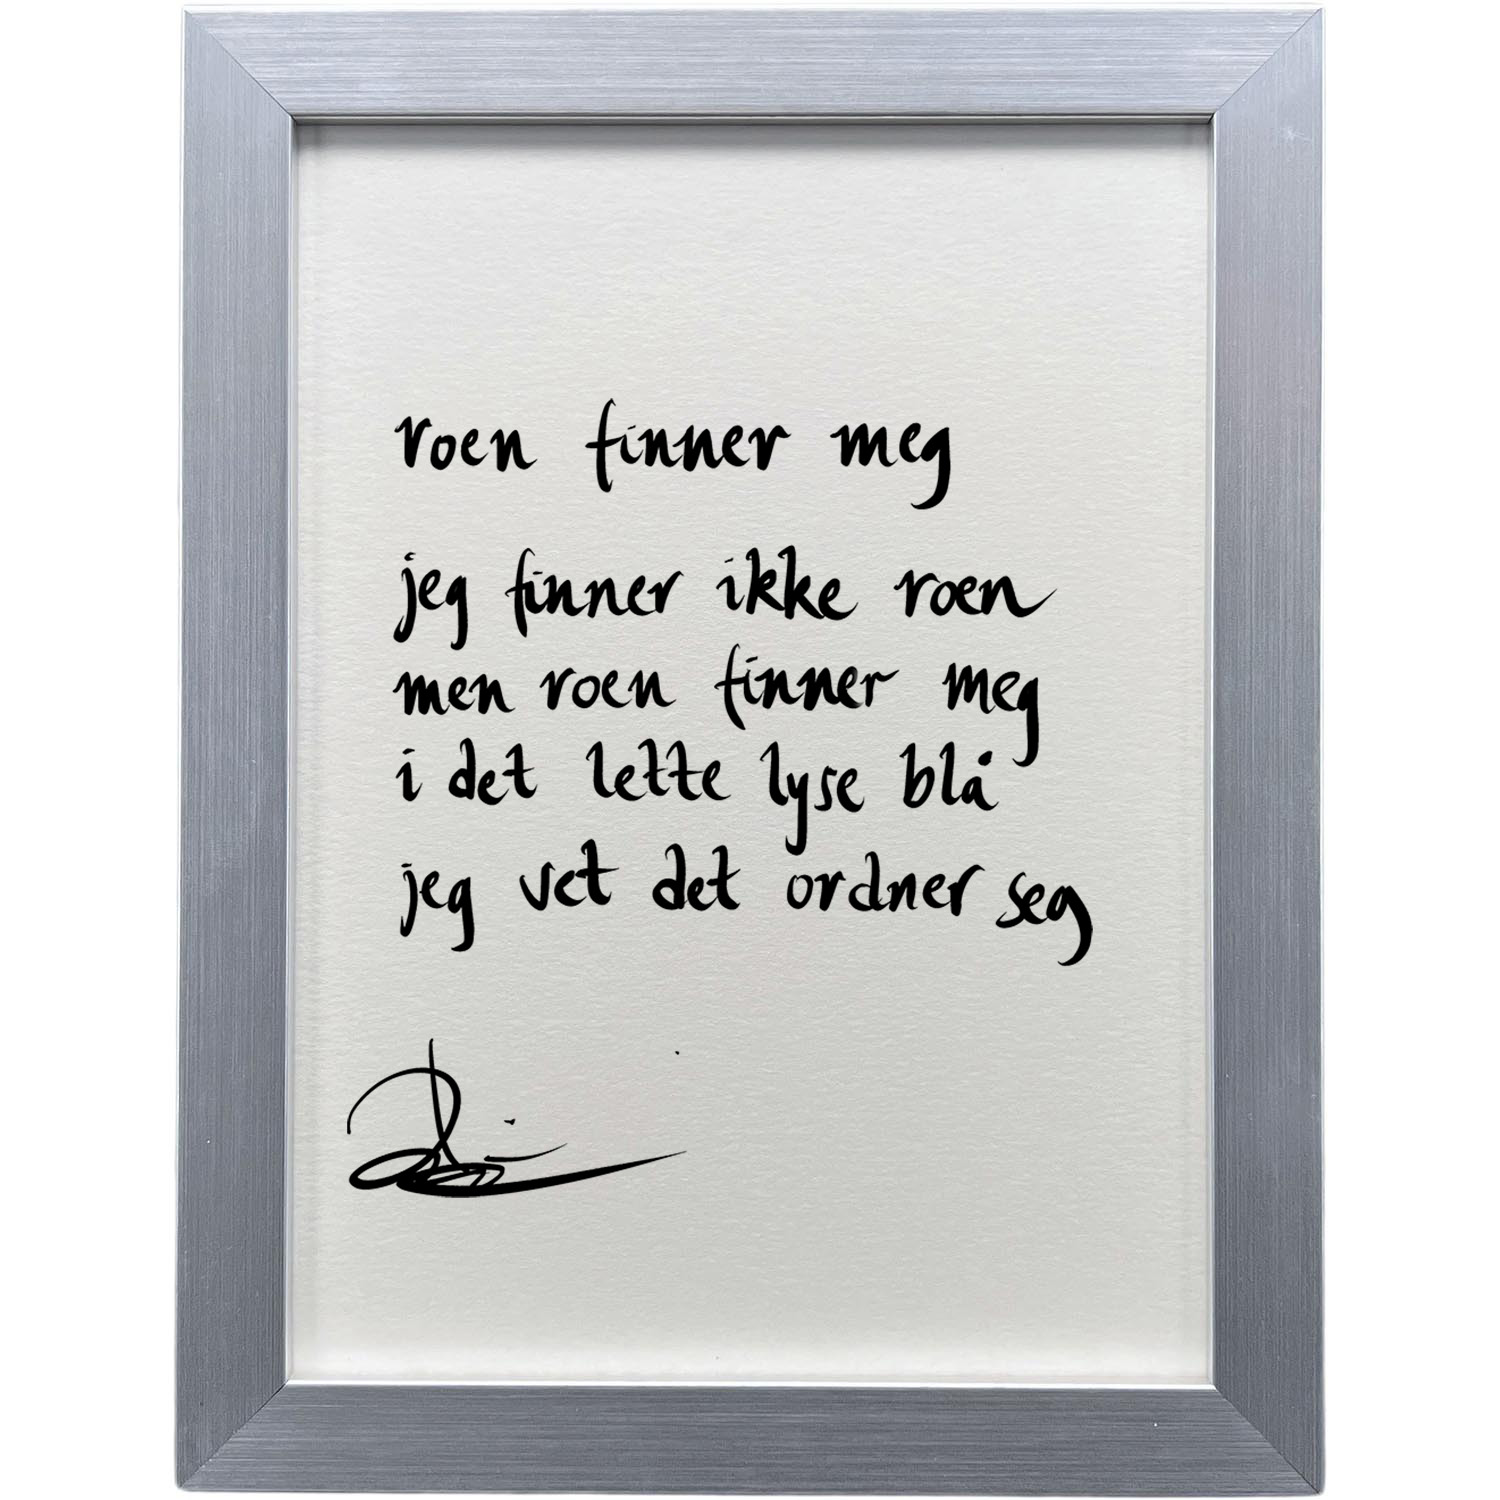 roen finner meg
jeg finner ikke roen
men roen finner meg
i det lette lyse blå
jeg vet det ordner seg